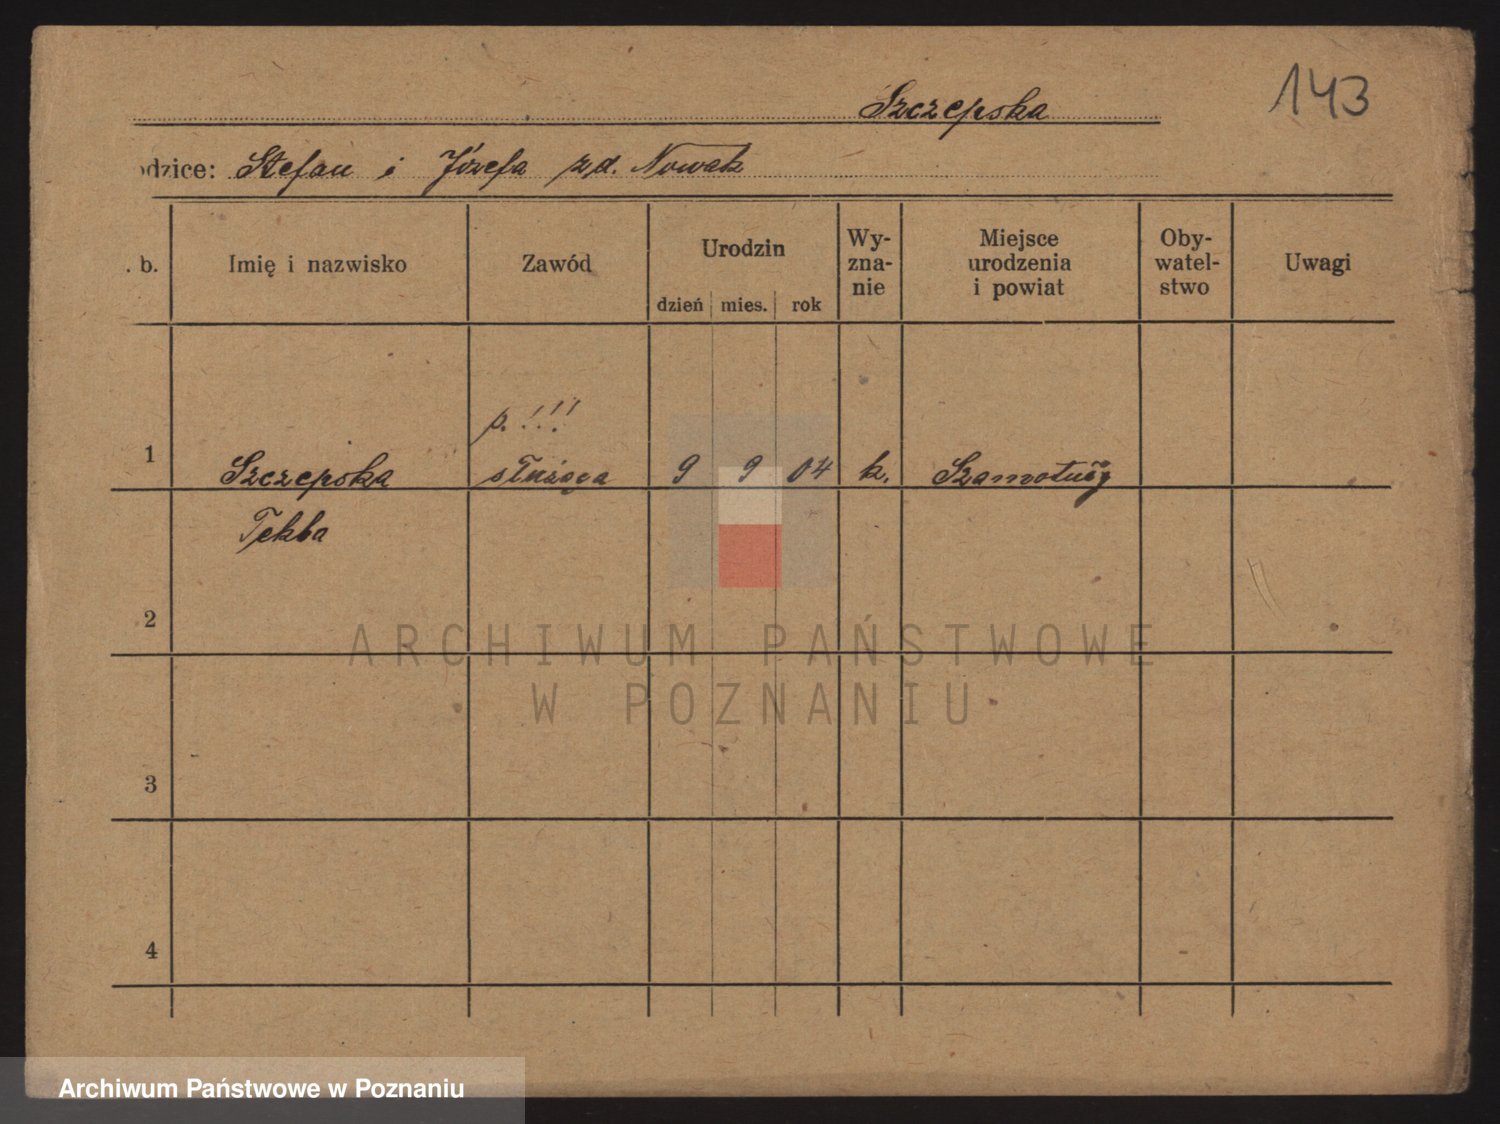 143
Szczepska
odzice: Stefan i Józefa z d. Nowak
. b.
Imię i nazwisko
Zawód
Urodzin
dzień mies. rok
Wy-
zna-
nie
Miejsce
urodzenia
i powiat
Oby-
watel-
stwo
Uwagi
p. !!!
1 Szczepska służąca 9 9 04 k. Szamotuły
Tekla
2
3
4
ARCHIWUM PAŃSTWOWE
W POZNANIU
Archiwum Państwowe w Poznaniu